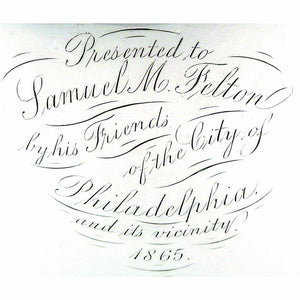 Presented to
Samuel M. Felton
by his Friends
of the City of
Philadelphia.
and its vicinity.
1865.